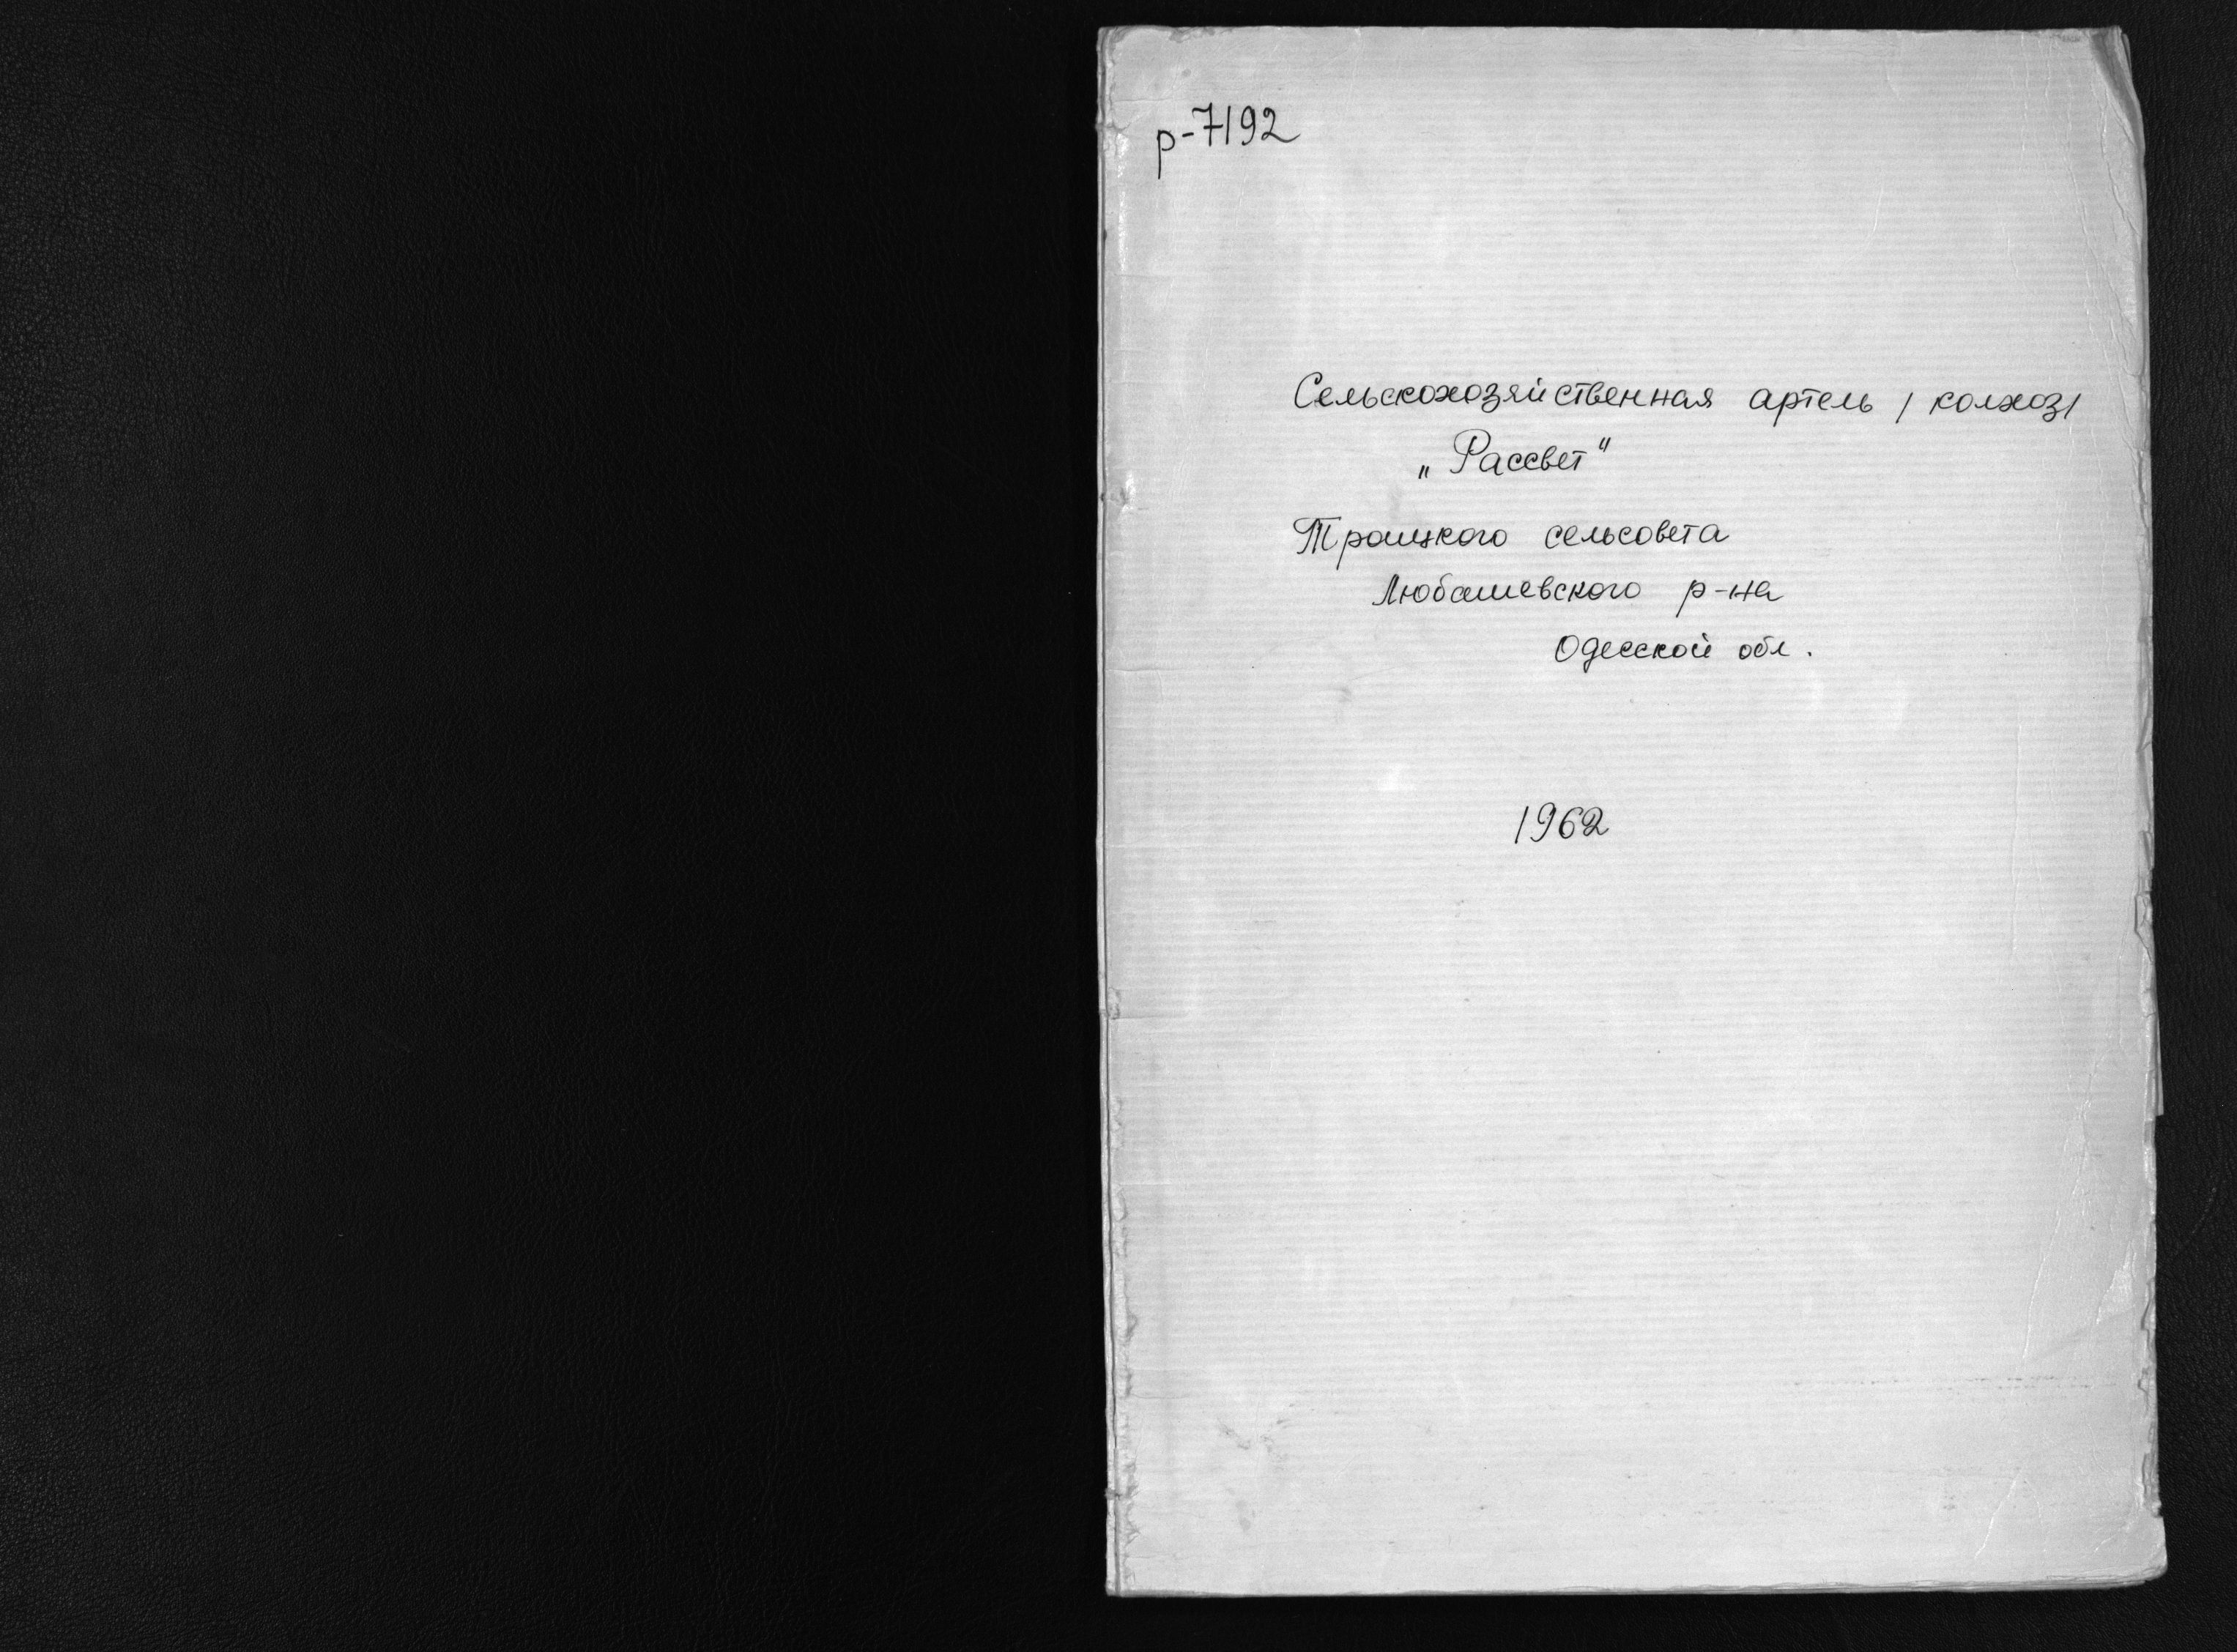 р-7192
Сельскохозяйственная артель / колхоз/
„Рассвет"
Троицкого сельсовета
Любашевского р-на
Одесской обл.
1962